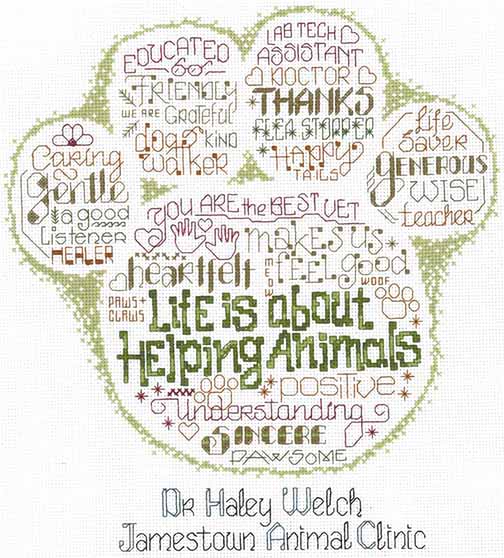 EDUCATED
FRIENDLY
WE ARE GRateful
dog KIND
walker
LAB TECH
ASSISTANT
DOCTOR
THANKS
FLEA STOPPER
HAPPY
TAILS
Caring
gentle
a good
Listener
HEALER
Life
Saver
GENEROUS
WISE
teacher
YOU ARE the BEST VET
makes us
heartfelt MEOW feel good
WOOF
PAWS +
CLAWS
Life is about
Helping Animals
positive
Understanding
SINCERE
PAWSOME
Dr Haley Welch
Jamestown Animal Clinic